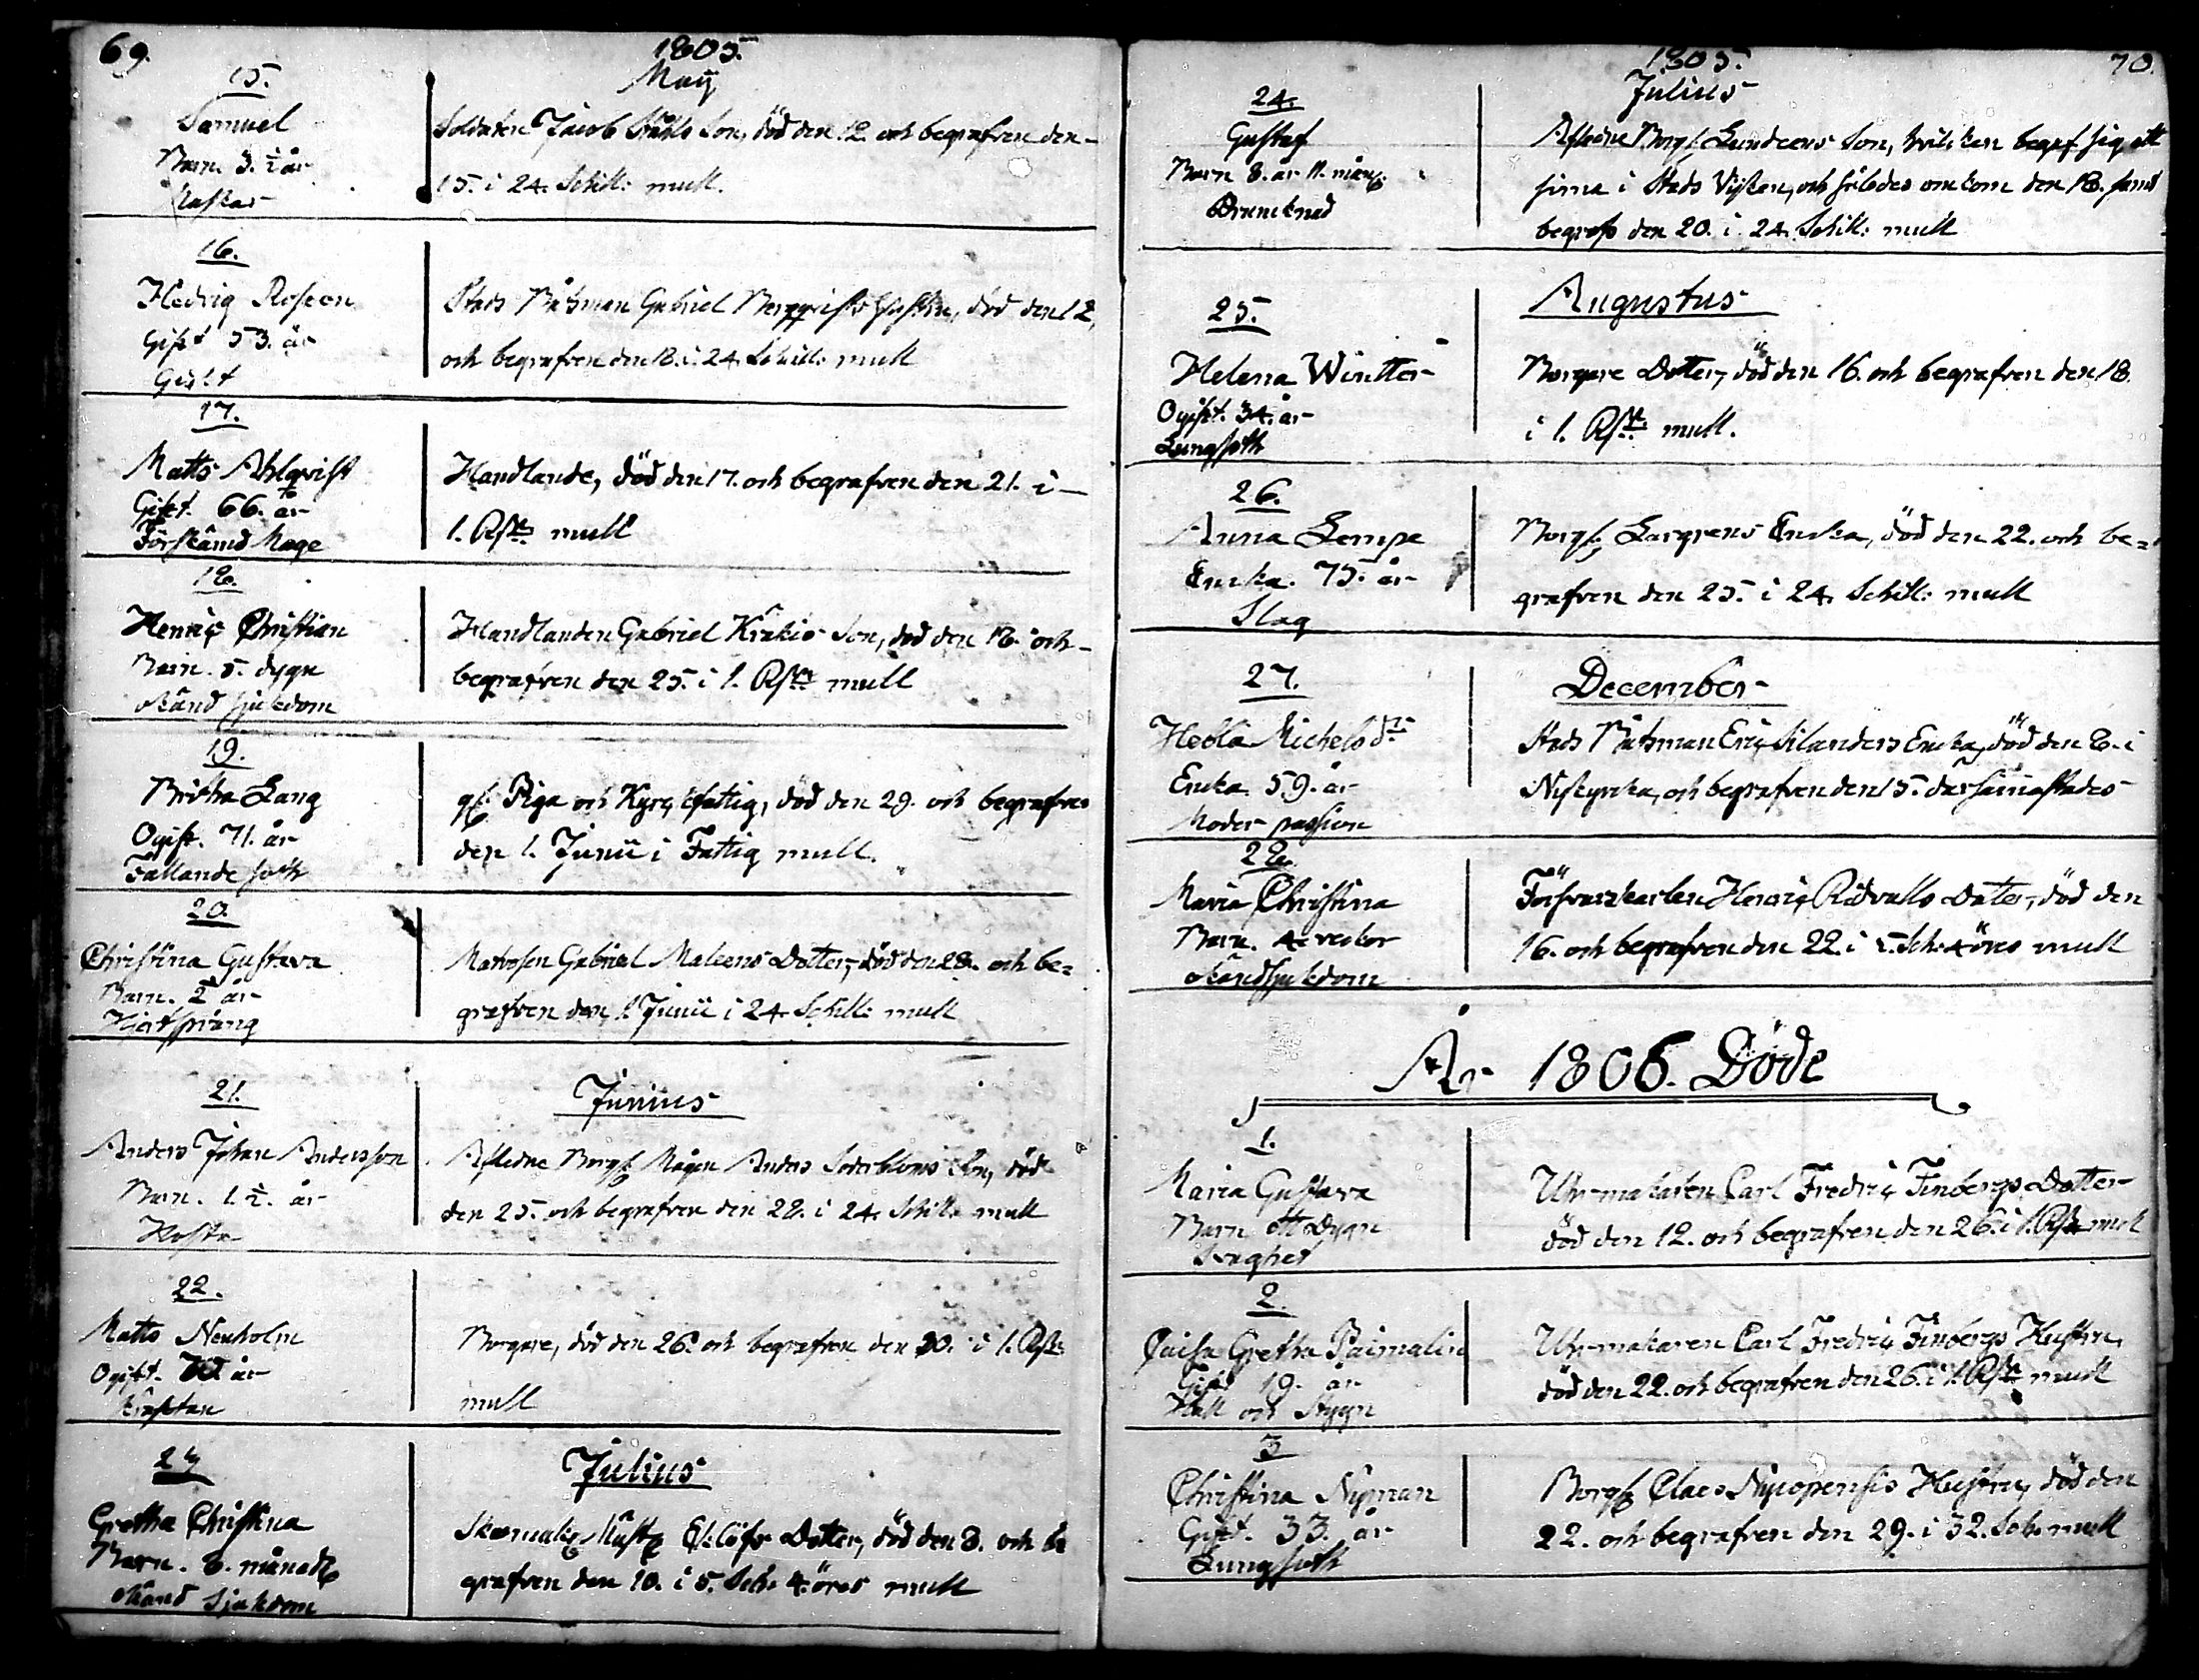 69.
1805.
Maij
15.
Samuel
Barn. 3. ½ år
Soldaten Jacob Ståhls Son, död den 12. och begrafven den
15. i 24. Schill: mull.
16.
Hedvig Roseen
Gift 53. år
Gickt
Stads Båtsman Gabriel Bergqvists Hustru, död den 12.
och begrafven den 18. i 24. Schill: mull
17.
Matts Ahlqvist
Gift. 66. år
Förskämd Mage
Handlande, död den 17. och begrafven den 21. i
1. Rsdr. mull
18.
Henric Christian
Barn. 5. dygn
okänd sjukdom
Handlanden Gabriel Kråkis Son, död den 18. och
begrafven den 25. i 1. Rsdr. mull
19.
Britha Lang
Ogift. 71. år
Fallande soth
gl. Piga och Kyrckfattig, död den 29. och begrafven
den 1. Junii i Fattig mull.
20.
Christina Gustava
Barn. 2 år
Hjertsprång
Matrosen Gabriel Maleens Dotter, död den 28. och be=
grafven den 1. Junii i 24. Schill: mull
21.
Junius
Anders Johan Andersson
Barn. 1. ½. år
Hosta
Afledne Borgs. Mågen Anders Söderbloms Son, död
den 25. och begrafven den 28. i 24. Schill: mull
22.
Matts Nenholm
Ogift. år
Kräftan
Borgare, död den 26. och begrafven den 30. i 1. Rsdr.
mull
23
Julius
Gretha Christina
Barn. 8. månad
okänd Sjukdom
Dotter, död den 8. och be
grafven den 10. i 5. Sch. 4. öres mull
1805.
70.
Julius
24.
Gustaf
Barn 8. år 11. mån
Druncknad
Afledne Borgs. Lundeens Son, hvilcken begaf sig att
sima i Stads Viken, och således omkom den 18. samt
begrofs den 20. i 24. Schill: mull
Augustus
25.
Helena Wintter
Ogift. 34. år
Lungsoth
Borgare Dotter, död den 16. och begrafven den 18.
i 1. Rsdr. mull.
26.
Anna Lempa
Encka. 75. år
Slag
Borgs. Largrens Encka, död den 22. och be=
grafven den 25. i 24. Schill: mull
27.
December
Hebla Michelsdr.
Encka. 59. år
Moder passion
Stads Båtsman Eric Silanders Encka, död den 8. i
Nykyrcka, och begrafven den 15. dersammastädes
28.
Maria Christina
Barn. 4. veckor
okändsjukdom
Försvarskarlen Henric Ridvalls Dotter, död den
16. och begrafven den 22. i 5. Sch. 4 öres mull
År 1806. Döde
1.
Maria Gustava
Barn ett Dygn
Svaghet
Uhrmakaren Carl Fredric Finbergs Dotter
död den 12. och begrafven den 26. i 1. Rsdr mull
2.
Caisa Gretha Paimalin
Gift 19. år
Håll och Stygn
Uhrmakaren Carl Fredric Finbergs Hustru,
död den 22. och begrafven den 26. i 1. Rsdr mull
3
Christina Nyman
Gift. 33. år
Lungsoth
Borgs. Claes Nycopensis Hustru, död den
22. och begrafven den 29. i 32. Sch. mull